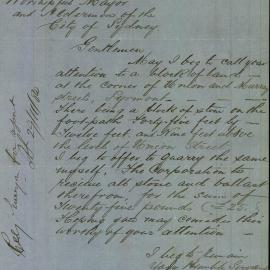 Worshipful Mayor
and Aldermen of the
City of Sydney
Gentlemen
May I beg to call your
attention to a block of land
at the corner of Union and Murray
Street, Pyrmont
There being a block of stone on the
footpath Forty-five feet by
Twelve feet and Nine feet above
the level of Union Street
I beg to offer to Quarry the same
myself. The Corporation to
receive all stone and ballast
therefrom, for the sum of
Twenty five pounds (£25)
Hoping you may consider this
worthy of your attention
I beg to remain
Your Humble
City